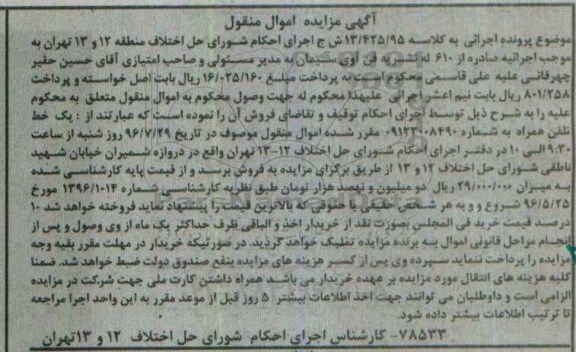 آگهی مزایده اموال منقول
موضوع پرونده اجرائی به کلاسه ۱۳/۴۲۵/۹۵ ش ج اجرای احکام شورای حل اختلاف منطقه ۱۲ و ۱۳ تهران به
موجب اجرائیه صادره از ۶۱۰ له نشریه فن آوی سیمان به مدیر مسئولی و صاحب امتیازی آقای حسین حقیر
چهرقانی علیه علی قاسمی محکوم است به پرداخت مبلغ ۱۶/۰۲۵/۱۶۰ ریال بابت اصل خواسته و پرداخت
۸۰۱/۲۵۸ ریال بابت نیم اعشر اجرائی علیهذا محکوم له جهت وصول محکوم به اموال منقول متعلق به محکوم
علیه را به شرح ذیل توسط اجرای احکام توقیف و تقاضای فروش آن را نموده است که عبارتند از : یک خط
تلفن همراه به شماره ۰۹۱۲۳۰۰۸۴۹۰ مقرر شده اموال منقول موصوف در تاریخ ۹۶/۷/۲۹ روز شنبه از ساعت
۹:۳۰ الی ۱۰ در دفتر اجرای احکام شورای حل اختلاف ۱۲-۱۳ تهران واقع در دروازه شمیران خیابان شهید
ناطقی شورای حل اختلاف ۱۲ و ۱۳ از طریق برگزای مزایده به فروش برسد و از قیمت پایه کارشناسی شده
به میزان ۲۹/۰۰۰/۰۰۰ ریال دو میلیون و نهصد هزار تومان طبق نظریه کارشناسی شماره ۱۳۹۶/۱۰۱۴ مورخ
۹۶/۵/۲۵ شروع و و به هر شخص حقیقی یا حقوقی که بالاترین قیمت را پیشنهاد نماید فروخته خواهد شد ۱۰
درصد قیمت خرید فی المجلس بصورت نقد از خریدار اخذ و الباقی ظرف حداکثر یک ماه از وی وصول و پس از
انجام مراحل قانونی اموال به برنده مزایده تملیک خواهد گردید. در صورتیکه خریدار در مهلت مقرر بقیه وجه
مزایده را پرداخت ننماید سپرده وی پس از کسر هزینه های مزایده بنفع صندوق دولت ضبط خواهد شد. ضمنا
کلیه هزینه های انتقال مورد مزایده بر عهده خریدار می باشد همراه داشتن کارت ملی جهت شرکت در مزایده
الزامی است و داوطلبان می توانند جهت اخذ اطلاعات بیشتر ۵ روز قبل از موعد مقرر به این واحد اجرا مراجعه
تا ترتیب اطلاعات بیشتر داده شود.
۷۸۵۳۳- کارشناس اجرای احکام شورای حل اختلاف ۱۲ و ۱۳ تهران